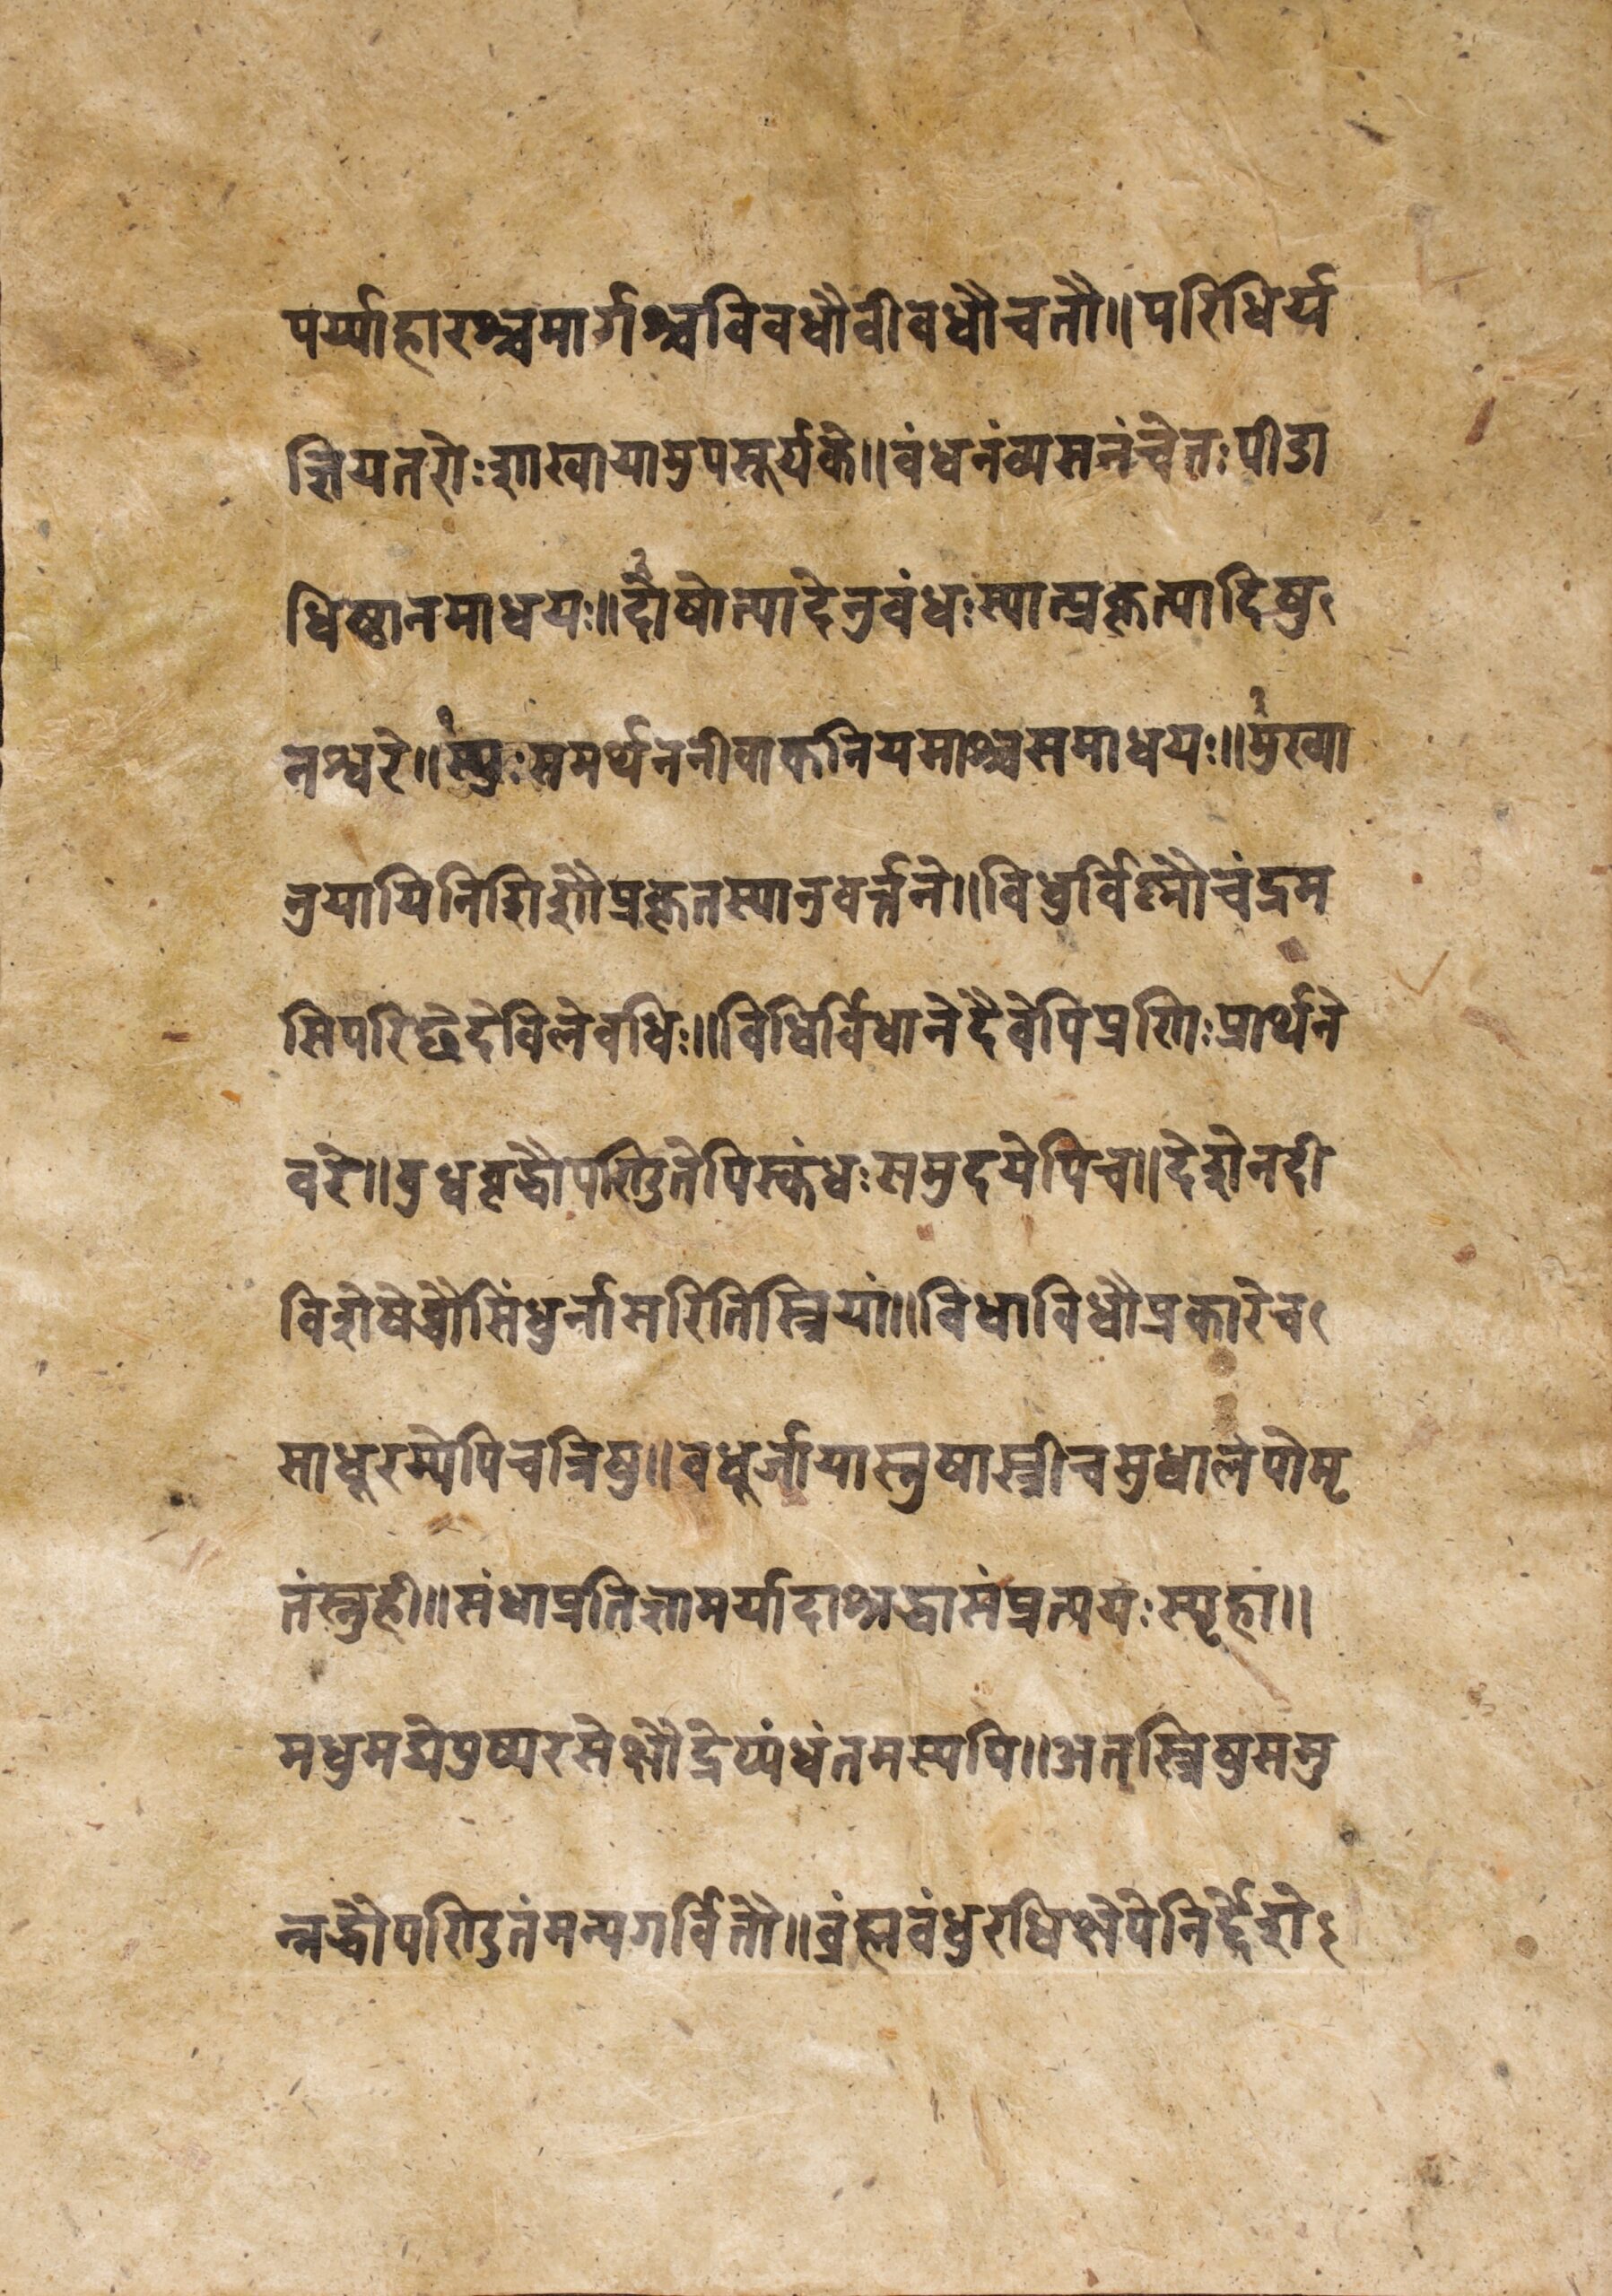 पर्य्याहारश्चमार्गश्चविवधौवीवधौचतौ॥परिधिर्य
ज्ञियतरोःशाखायामुपसूर्यके॥वंधनंव्यसनंचेतःपीडा
धिष्ठानमाधयः॥दोषोत्पादेनुवंधःस्यात्प्रकृत्यादिषु
नश्वरे॥स्युःसमर्थननीवाकनियमाश्चसमाधयः॥मुख्या
नुयायिनिशिशौप्रकृतस्यानुवर्त्तने॥विधुर्विष्णौचंद्रम
सिपरिछेदेविलेवधिः॥विधिर्विधानेदैवेपिप्रणिःप्रार्थने
चरे॥वुधवृद्धौपण्डितेपिस्कंधःसमुदयेपिच॥देशेनदी
विशेषेब्धौसिंधुर्नासरितिस्त्रियां॥विधाविधौप्रकारेच
साधूरम्येपिचत्रिषु॥वधूर्जायास्नुषास्त्रीचसुधालेपोमृ
तंस्नुही॥संधाप्रतिज्ञामर्यादाश्रद्धासंप्रत्ययःस्पृहा॥
मधुमद्येपुष्परसेक्षौद्रेप्यंधंतमस्यपि॥अतस्त्रिषुसमु
न्नद्धौपण्डितंमन्यगर्वितौ॥व्रंह्मवंधुरधिक्षेपेनिर्द्देशे